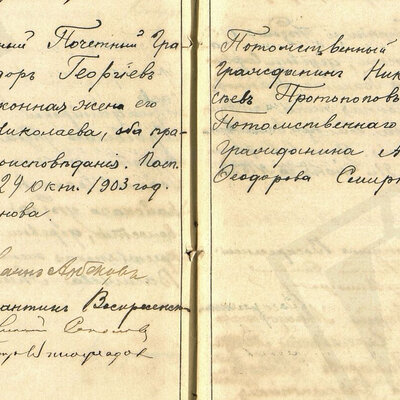 ный Почетный Гра
доръ Георгіевъ
конная жена его
Николаева, оба пра-
оисповѣданія. Посп.
29 Окт. 1903 год.
нова.
антинъ Воскресенск
Потомственный
Гражданинъ Ник
сѣевъ Протопоповъ
Потомственнаго
Гражданина А
Ѳеодорова Смир